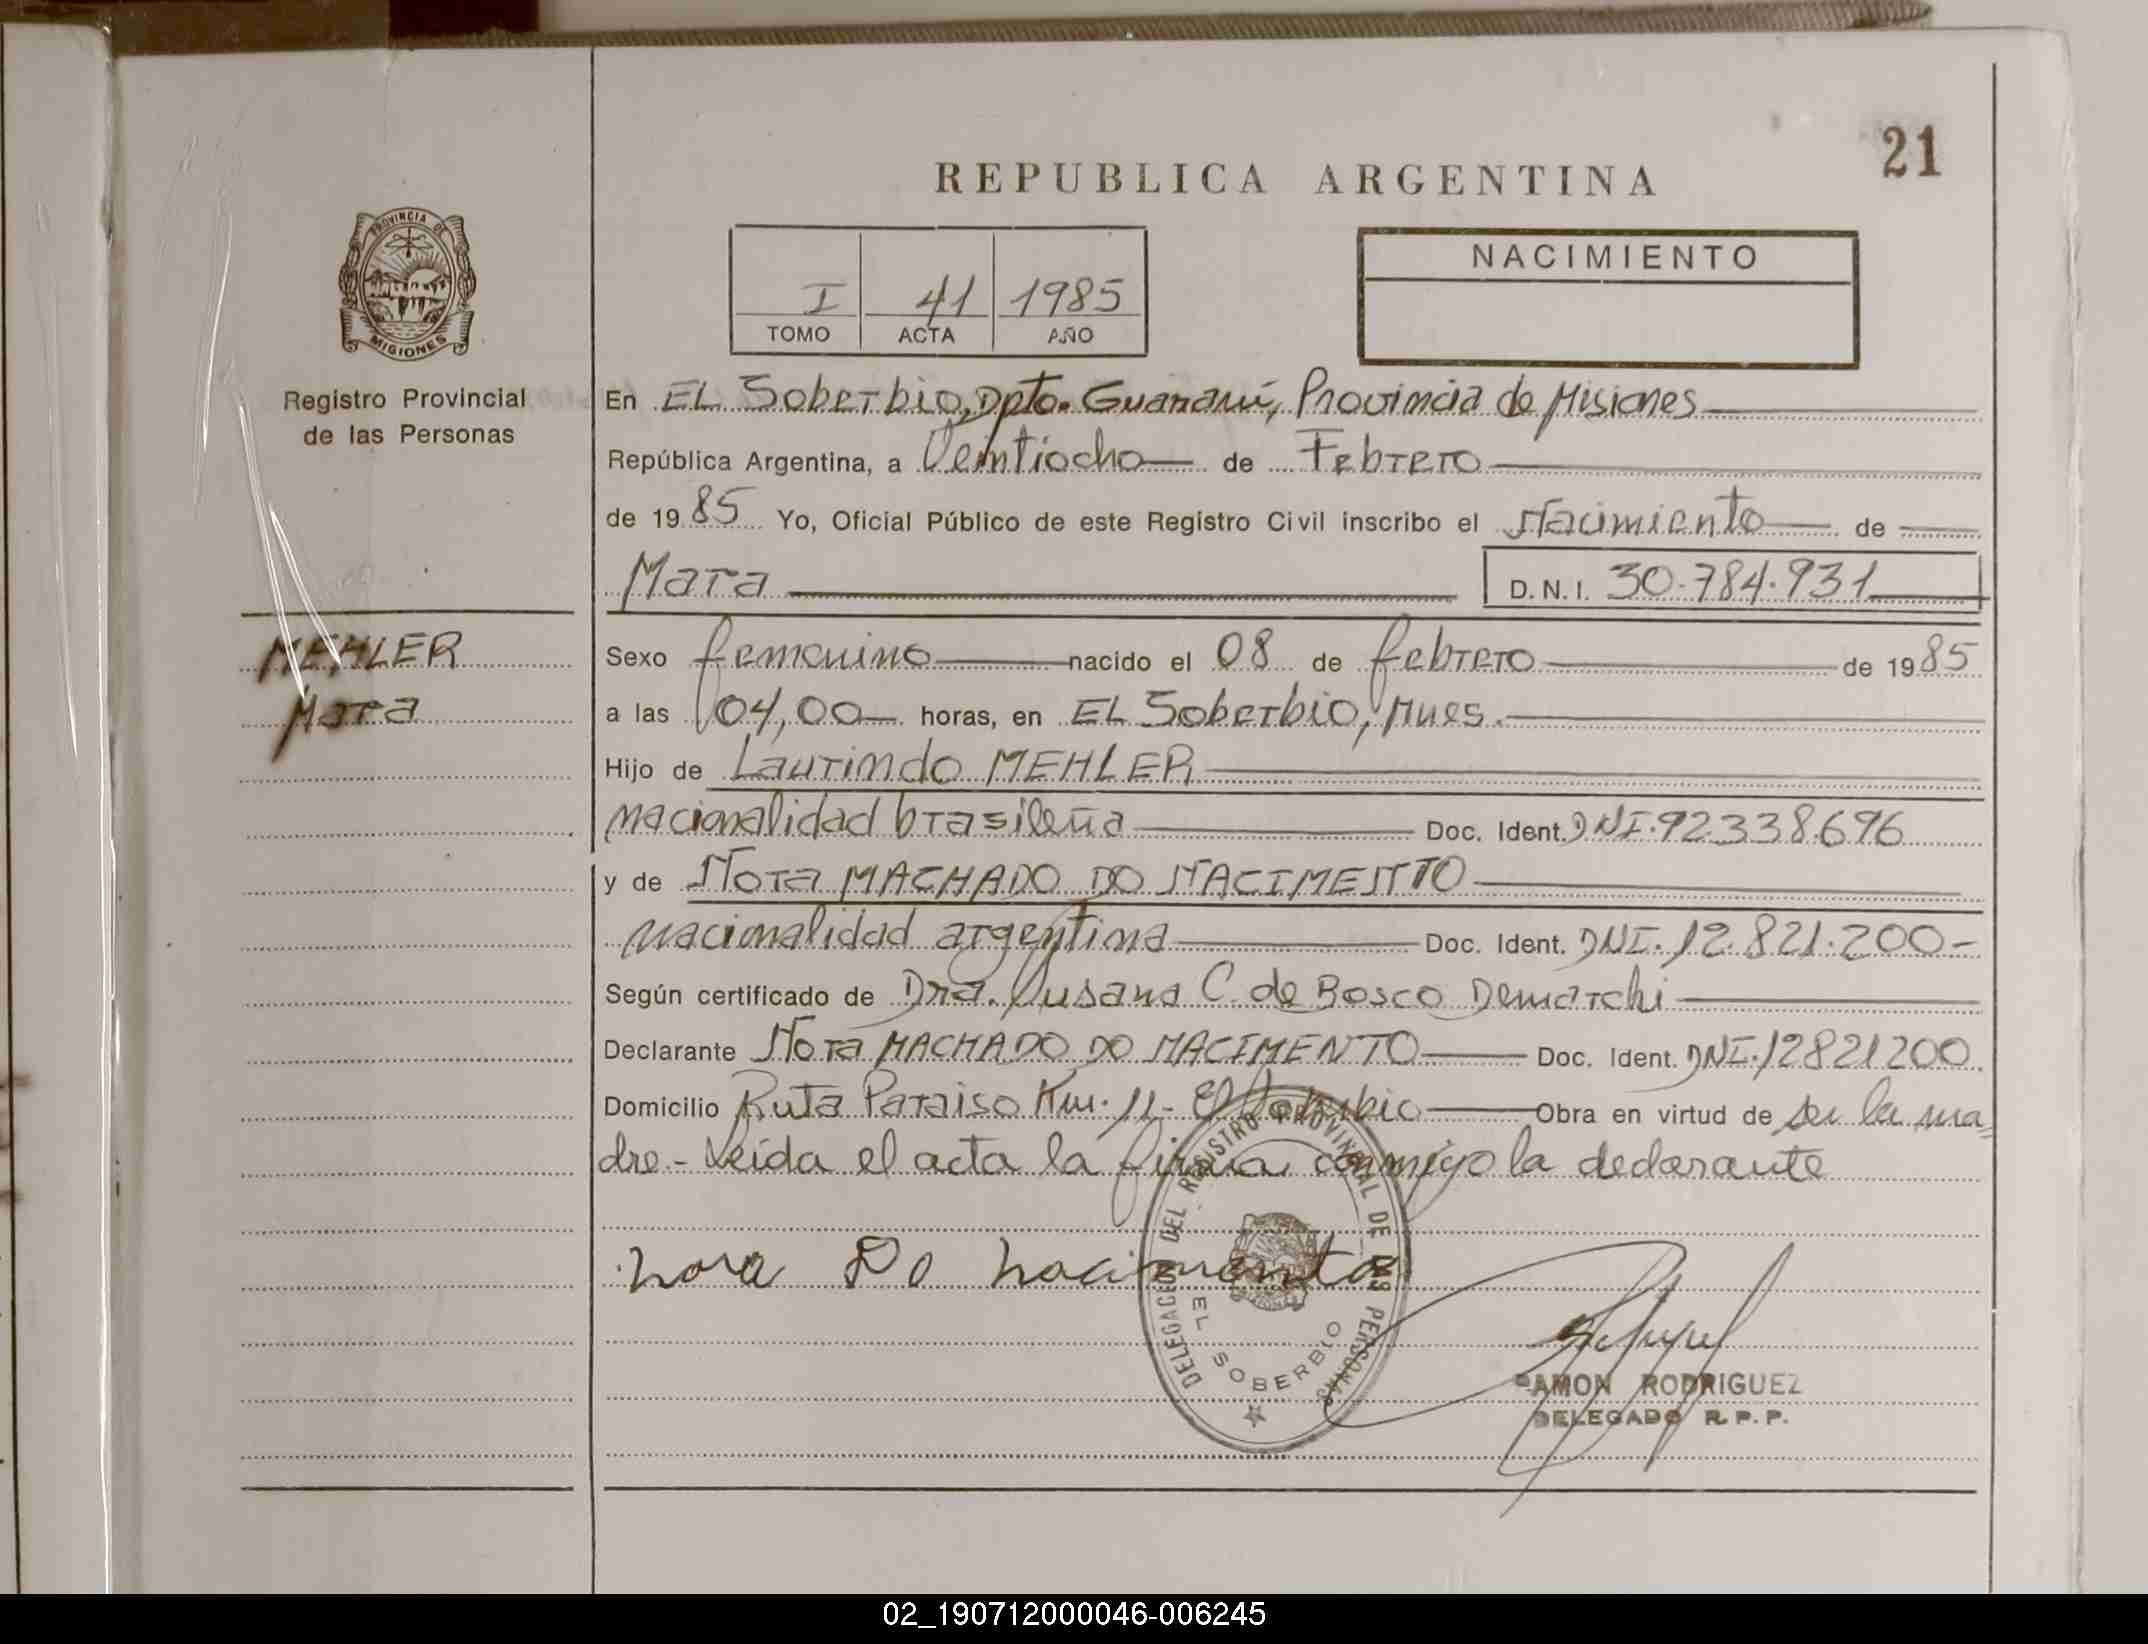 21
REPUBLICA ARGENTINA
PROVINCIA DE
MISIONES
I 41 1985
TOMO ACTA AÑO
NACIMIENTO
Registro Provincial
de las Personas
En EL Soberbio, Dpto. Guaraní, Provincia de Misiones
República Argentina, a Veintiocho de Febrero
de 1985 Yo, Oficial Público de este Registro Civil inscribo el Nacimiento de
Mara D.N.I. 30.784.931
MEHLER
Mara
Sexo femenino nacido el 08 de febrero de 1985
a las 04,00 horas, en EL Soberbio, Mnes.
Hijo de Laurindo MEHLER
nacionalidad brasileña Doc. Ident. DNI.92.338.696
y de Nora MACHADO DO NACIMENTO
nacionalidad argentina Doc. Ident. DNI.12.821.200-
Según certificado de Dra. Susana C. de Bosco Demarchi
Declarante Nora MACHADO DO NACIMENTO Doc. Ident. DNI.12821200
Domicilio Ruta Paraiso Km. 11- El Soberbio Obra en virtud de ser la ma=
dre- Leída el acta la firma conmigo la declarante
nora Do nacimento
DELEGACION DEL REGISTRO PROVINCIAL DE LAS PERSONAS
EL SOBERBIO
RAMON RODRIGUEZ
DELEGADO R.P.P.
02_190712000046-006245